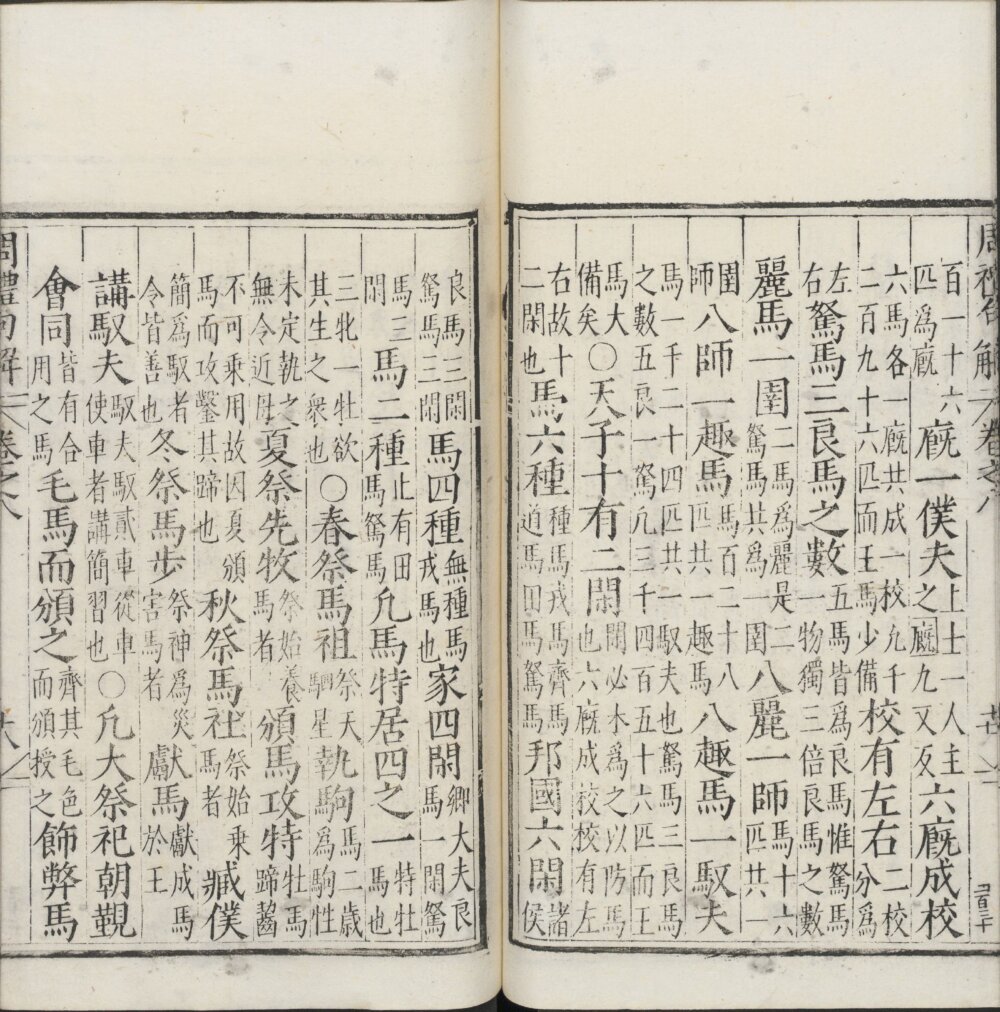 周礼句解 卷之六
百一十六匹為廐廐一僕夫上士一人主之廐九又友六廐成校
六馬各一廐共成一校凢千二百九十六匹而王馬少備校有左右二校分為
左右駑馬三良馬之數五馬皆為良馬惟駑馬一物獨三倍良馬之數
麗馬一圉二馬為麗是二駑馬其為一圉八麗一師馬十六匹共一
圉師八師一趣馬馬百二十八匹共一趣馬八趣馬一馭夫
馬一千二十四匹共一馭夫也駑馬三良馬之數五良一駑凢三千四百五十六匹而王
馬大備矣〇天子十有二閑閑必木為之以防馬也六廐成校校有左
右故十二閑也馬六種種馬戎馬齊馬道馬田馬駑馬邦國六閑諸侯
良馬三閑駑馬三閑馬四種無種馬戎馬也家四閑卿大夫良馬一閑駑
馬三閑馬二種止有田馬駑馬凢馬特居四之一特牡馬也
三牝一牡欲其生之衆也〇春祭馬祖祭天駟星執駒馬二歲為駒性
未定執之無令近母夏祭先牧祭始養馬者頒馬攻特牡馬蹄齧
不可乗用故因夏頒馬而攻鑿其蹄也秋祭馬社祭始乗馬者臧僕
簡為馭者令皆善也冬祭馬步祭神為災害馬者獻馬獻成馬於王
講馭夫馭夫馭貳車從車使車者講簡習也〇凢大祭祀朝覲
會同皆有合用之馬毛馬而頒之齊其毛色而頒授之飾弊馬
周禮句解 卷之六